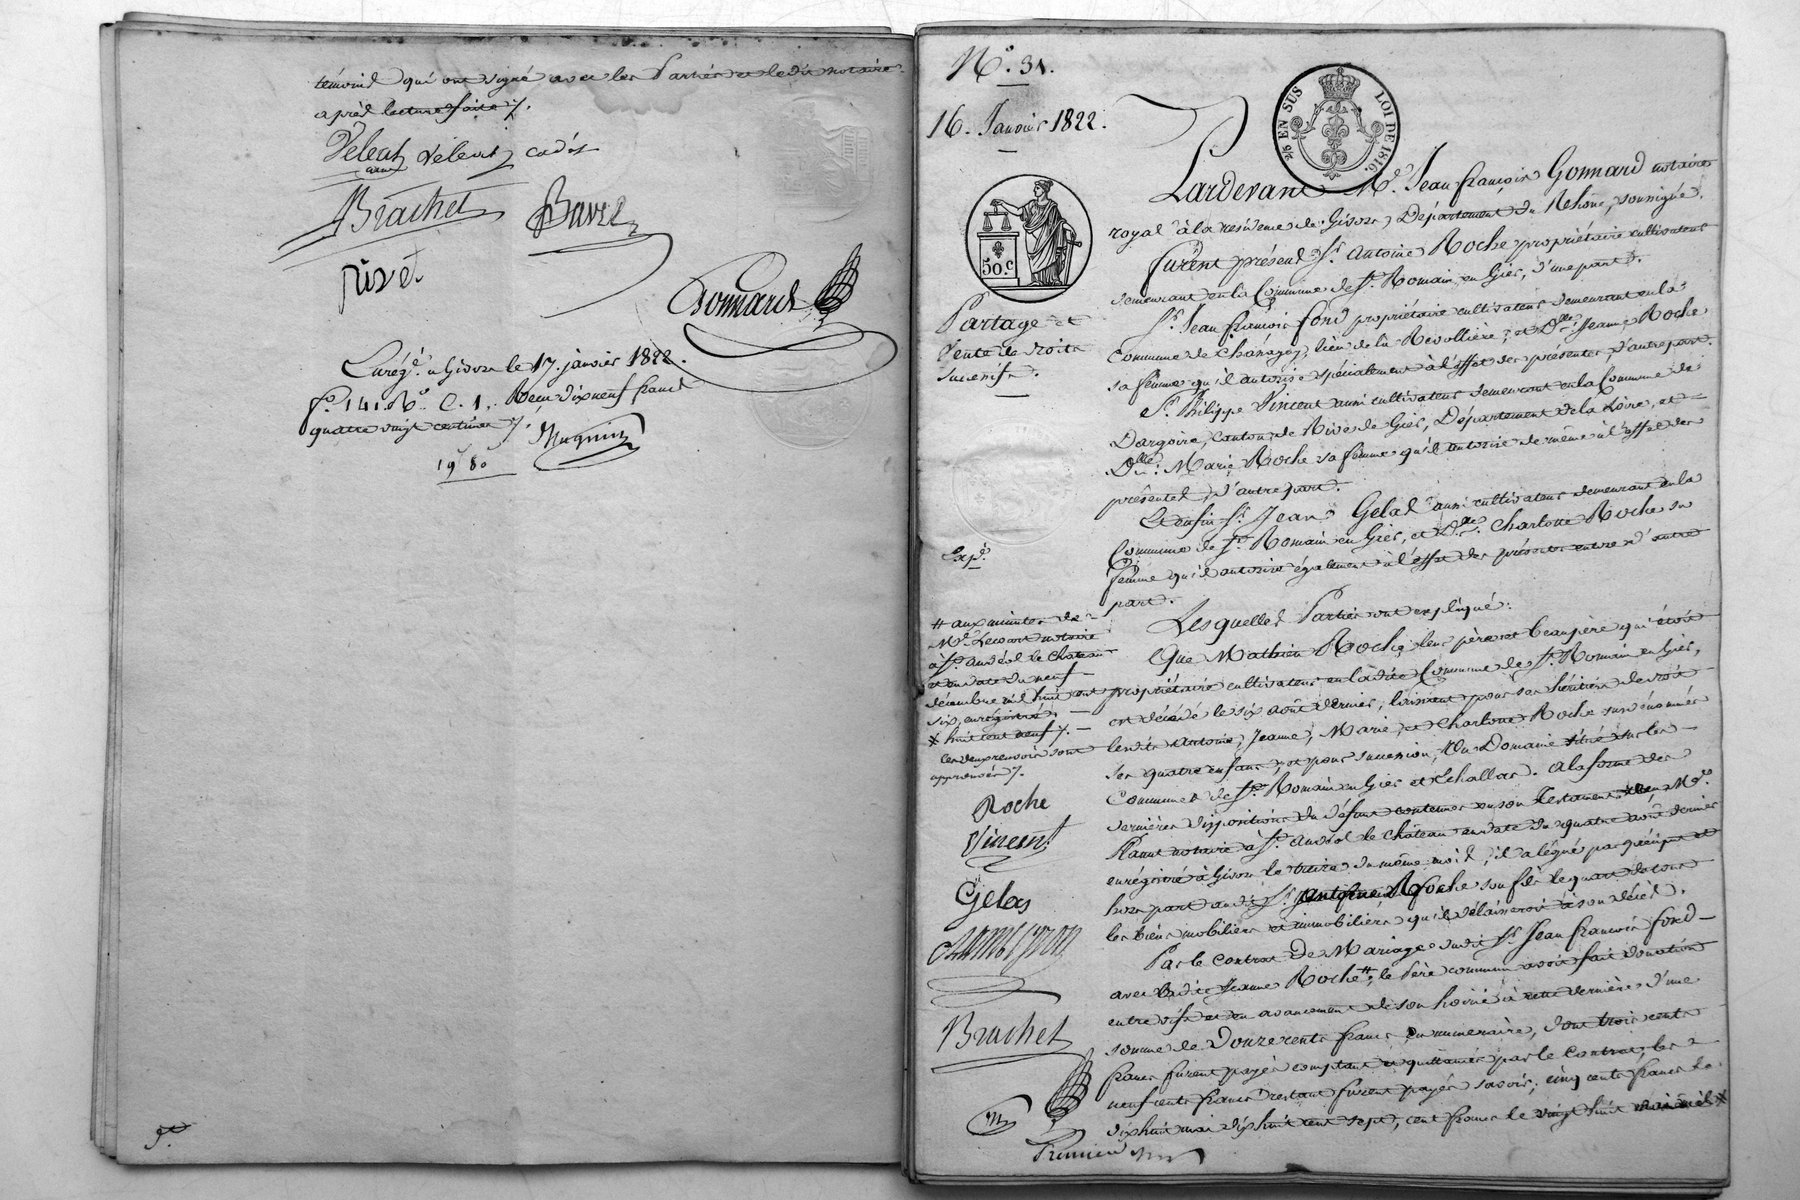 témoins qui ont signé avec les Parties et le dit notaire
après lecture faite /.
Veleat Veleat cadet
ainé
Brachet Bavel
rivet
Gonnard
Enrég.é à Givors le 17. janvier 1822.
f.o 141. R.o C. 1. Recu dixneuf francs
quatre vingt centimes /.
19 f 80
N.o 31.
16. Janvier 1822.
2/8 EN SUS LOI DE 1816.
50.c
Partage et
Vente de droits
successifs.
Pardevant M.e Jean françois Gonnard notaire
royal à la residence de Givors, Département du Rhône, soussigné,
furent présents S.r Antoine Roche propriétaire cultivateur
demeurant en la Commune de S.t Romain en Gier, d'une part.
S.r Jean françois fond propriétaire cultivateur demeurant en la
Commune de Chânagey, lieu de la Revollière, et D.lle Jeanne Roche
sa femme qu'il autorise spécialement à l'effet des présentes, d'autre part.
S.r Philippe Vincent aussi cultivateur demeurant en la Commune de
Dargoire, canton de Rive de Gier, Département de la Loire, et
D.lle Marie Roche sa femme qu'il autorise de même à l'effet des
présentes, d'autre part.
Et enfin S.r Jean Gelas aussi cultivateur demeurant en la
Commune de S.t Romain en Gier, et D.lle Charlotte Roche sa
femme qu'il autorise également à l'effet des présentes encore d'autre
part.
Lesquelles Parties ont expliqué:
Que Mathieu Roche, leur père et beaupère qui étoit
propriétaire cultivateur en la dite Commune de S.t Romain en Gier,
est décédé le six août dernier, laissant pour ses héritiers de droit
lesdits Antoine, Jeanne, Marie, et Charlotte Roche susnommés
ses quatre enfans, et pour succession, Un Domaine situé sur les
Communes de S.t Romain en Gier et Echallas. A la forme des
dernières dispositions du défunt contenues en son Testament reçu M.e
notaire à S.t Andéol le château en date du quatre août dernier
enrégistré à Givors le treize du même mois, il a légué par préciput et
hors part audit S.r Antoine Roche son fils le quart de tous
les biens mobiliers et immobiliers qu'il délaisseroit à son décès.
Par le contrat de Mariage dudit S.r Jean françois fond
avec ladite Jeanne Roche #, le Père commun avoit fait donation
entre vifs et en avancement de son hoirie à cette dernière d'une
somme de Douze cents francs en numéraire, dont trois cents
francs furent payés comptant et quittancés par le contrat, les
neuf cents francs restant furent payés savoir, cinq cents francs le
dixhuit mai dixhuit cent sept, cent francs le vingt huit
Exp.é
# aux minutes de
M.e notaire
à S.t Andéol le Chateau
et en date du neuf
décembre mil huit cent
six, enrégistré,
X huit cent neuf /.
les deux renvois sont
approuvés /.
Roche
Vincent
Gelas
Brachet
Premier